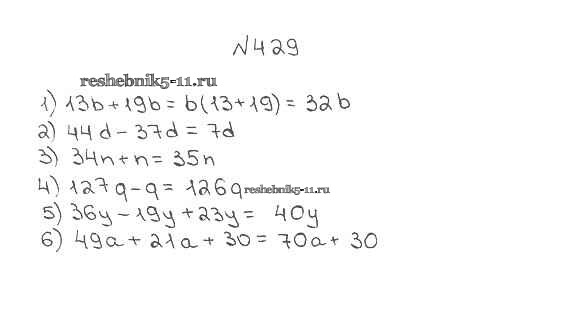 №429
reshebnik5-11.ru
1) 13b + 19b = b(13 + 19) = 32b
2) 44d - 37d = 7d
3) 34n + n = 35n
4) 127q - q = 126q reshebnik5-11.ru
5) 36y - 19y + 23y = 40y
6) 49a + 21a + 30 = 70a + 30